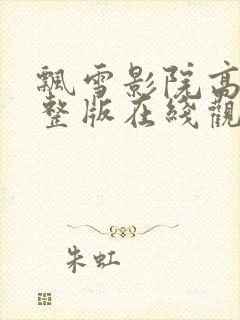 飄雪影院高
整版在綫觀
朱虹